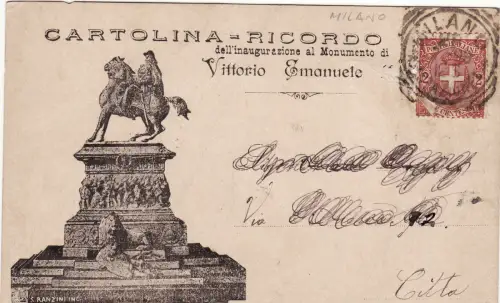 MILANO
CARTOLINA-RICORDO
dell'inaugurazione al Monumento di
Vittorio Emanuele
MILANO
2 2
Via 12.
Città
S. RANZINI INC.